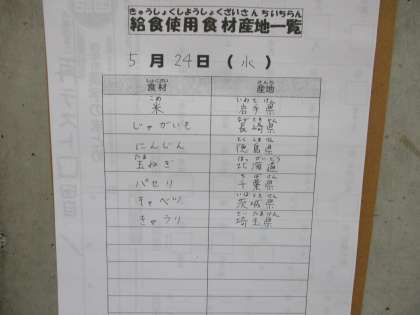 きゅうしょくしようしょくざいさんちいちらん
給食使用食材産地一覧
5月24日(水)
しょくざい さんち
食材 産地
こめ いわてけん
米 岩手県
ながさきけん
じゃがいも 長崎県
とくしまけん
にんじん 徳島県
たま ほっかいどう
玉ねぎ 北海道
ちばけん
パセリ 千葉県
いばらきけん
キャベツ 茨城県
さいたまけん
きゅうり 埼玉県